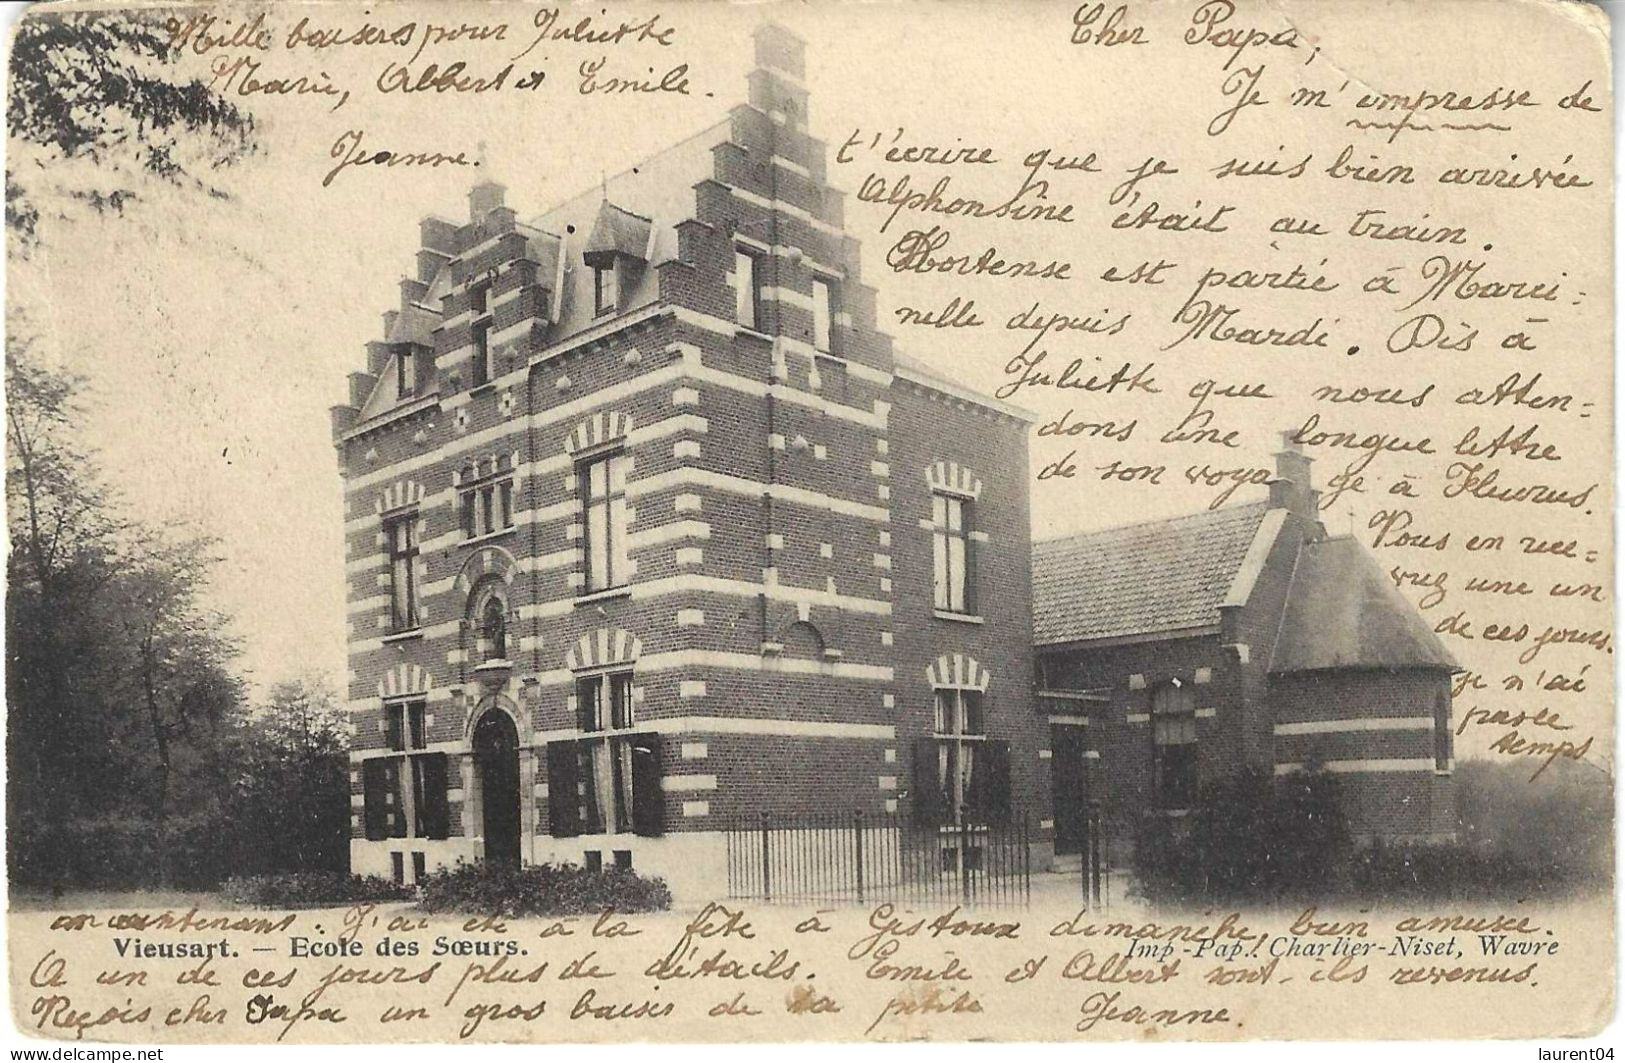 Mille baisers pour Juliette
Marie, Albert et Emile.
Jeanne.
Cher Papa,
Je m'empresse de
t'écrire que je suis bien arrivée
Alphonsine était au train.
Hortense est partie à Marci-
nelle depuis Mardi. Dis à
Juliette que nous atten-
dons une longue lettre
de son voyage à Fleurus.
Vous en rece-
vrez une un
de ces jours.
je n'ai
pas le
temps
maintenant. J'ai été à la fête à Gistoux dimanche, bien amusée.
Vieusart. — Ecole des Sœurs.
Imp.-Pap. Charlier-Niset, Wavre
A un de ces jours plus de détails. Emile et Albert sont-ils revenus.
Reçois cher Papa un gros baiser de ta petite Jeanne.
delcampe.net
laurent04